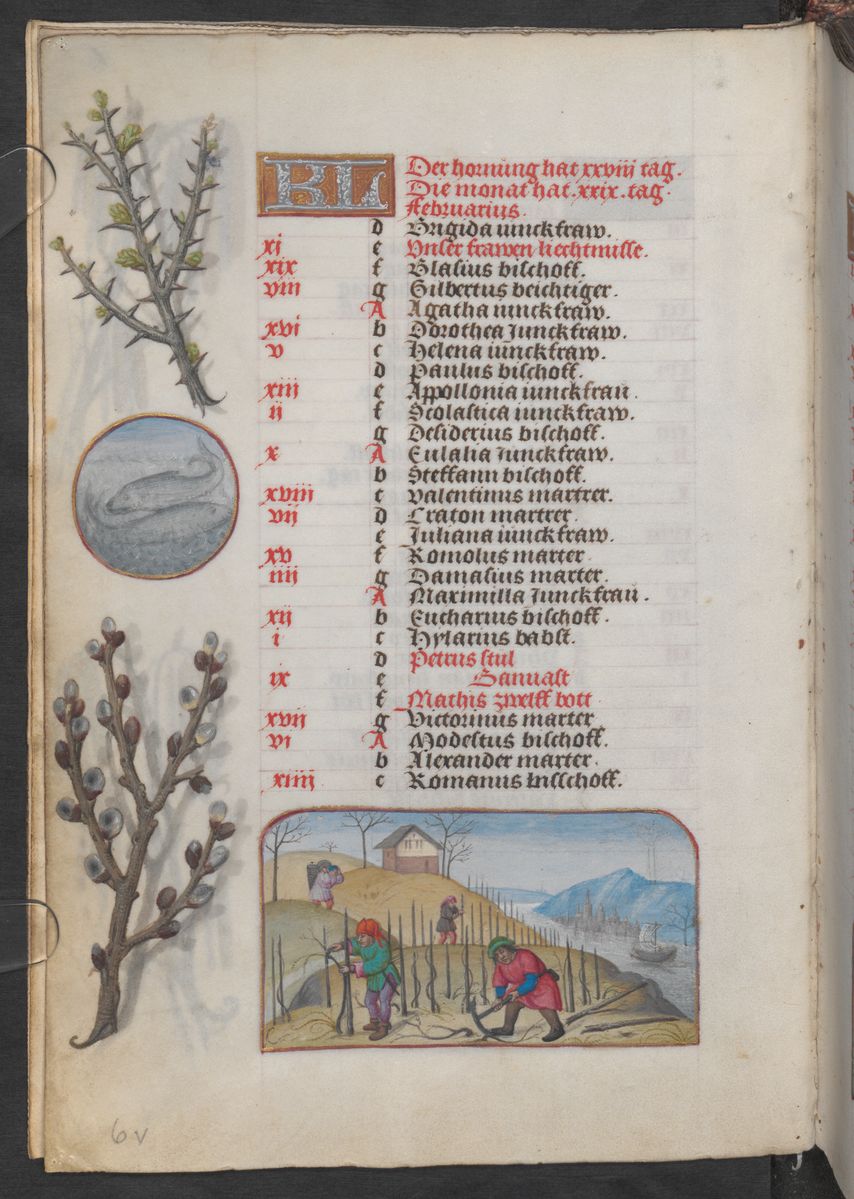 KL Der hornung hat xxviij tag.
Die monat hat .xxix. tag
Februarius.
d Brigida iunckfraw.
xj e Vnser frawen liechtmisse.
xix f Blasius bischoff.
viij g Gilbertus beichtiger.
A Agatha iunckfraw.
xvj b Dorothea Junckfraw.
v c Helena iunckfraw.
d Paulus bischoff.
xiij e Appollonia iunckfrau.
ij f Scolastica iunckfraw.
g Desiderius bischoff.
x A Eulalia Junckfraw.
b Steffann bischoff.
xviij c Valentinus martrer.
vij d Craton martrer
e Juliana iunckfraw.
xv f Romolus marter
iiij g Damasius marter.
A Maximilla Junckfrau.
xij b Eucharius bischoff.
i c Hylarius babst.
d Petrus stul
ix e
f Mathis zwelff bott
xvij g Victorinus marter
vj A Modestus bischoff.
b Alexander marter
xiiij c Romanus bisschoff.
6v